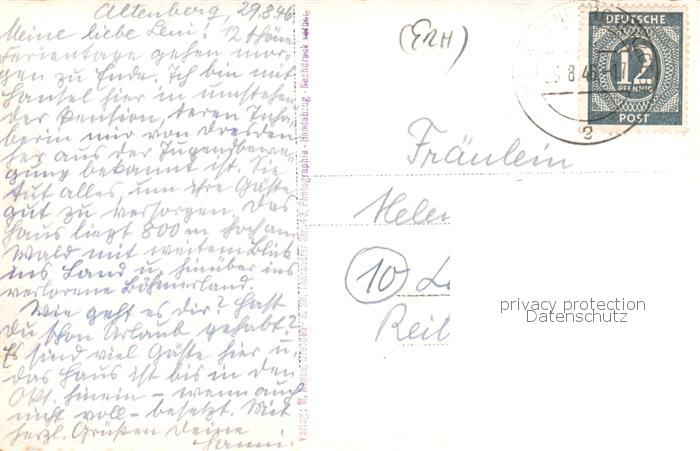 Altenberg, 29.8.46.
Meine liebe Leni! 12 schöne
Ferientage gehen mor-
gen zu Ende. Ich bin mit
Hansel hier in umstehen
der Pension, deren Inha-
berin mir von Dresden
her aus der Jugendbewe-
gung bekannt ist. Sie
tut alles um ihre Gäste
gut zu versorgen. Das
Haus liegt 800 m hoch am
Wald mit weitem Blick
ins Land u. hinüber ins
verlorene Böhmerland.
Wie geht es dir? Hast
Du schon Urlaub gehabt?
Es sind viel Gäste hier u.
das Haus ist bis in den
Okt. hinein - wenn auch
nicht voll - besetzt. Mit
herzl. Grüßen Deine
Hanni.
Dresden A. 28, Tharandter Str. 43, Photographie - Handabzug - Nachdruck verboten
(EZH)
DEUTSCHE
12
PFENNIG
POST
8.46.-17
a
Fräulein
Helen
10
Reit
privacy protection
Datenschutz